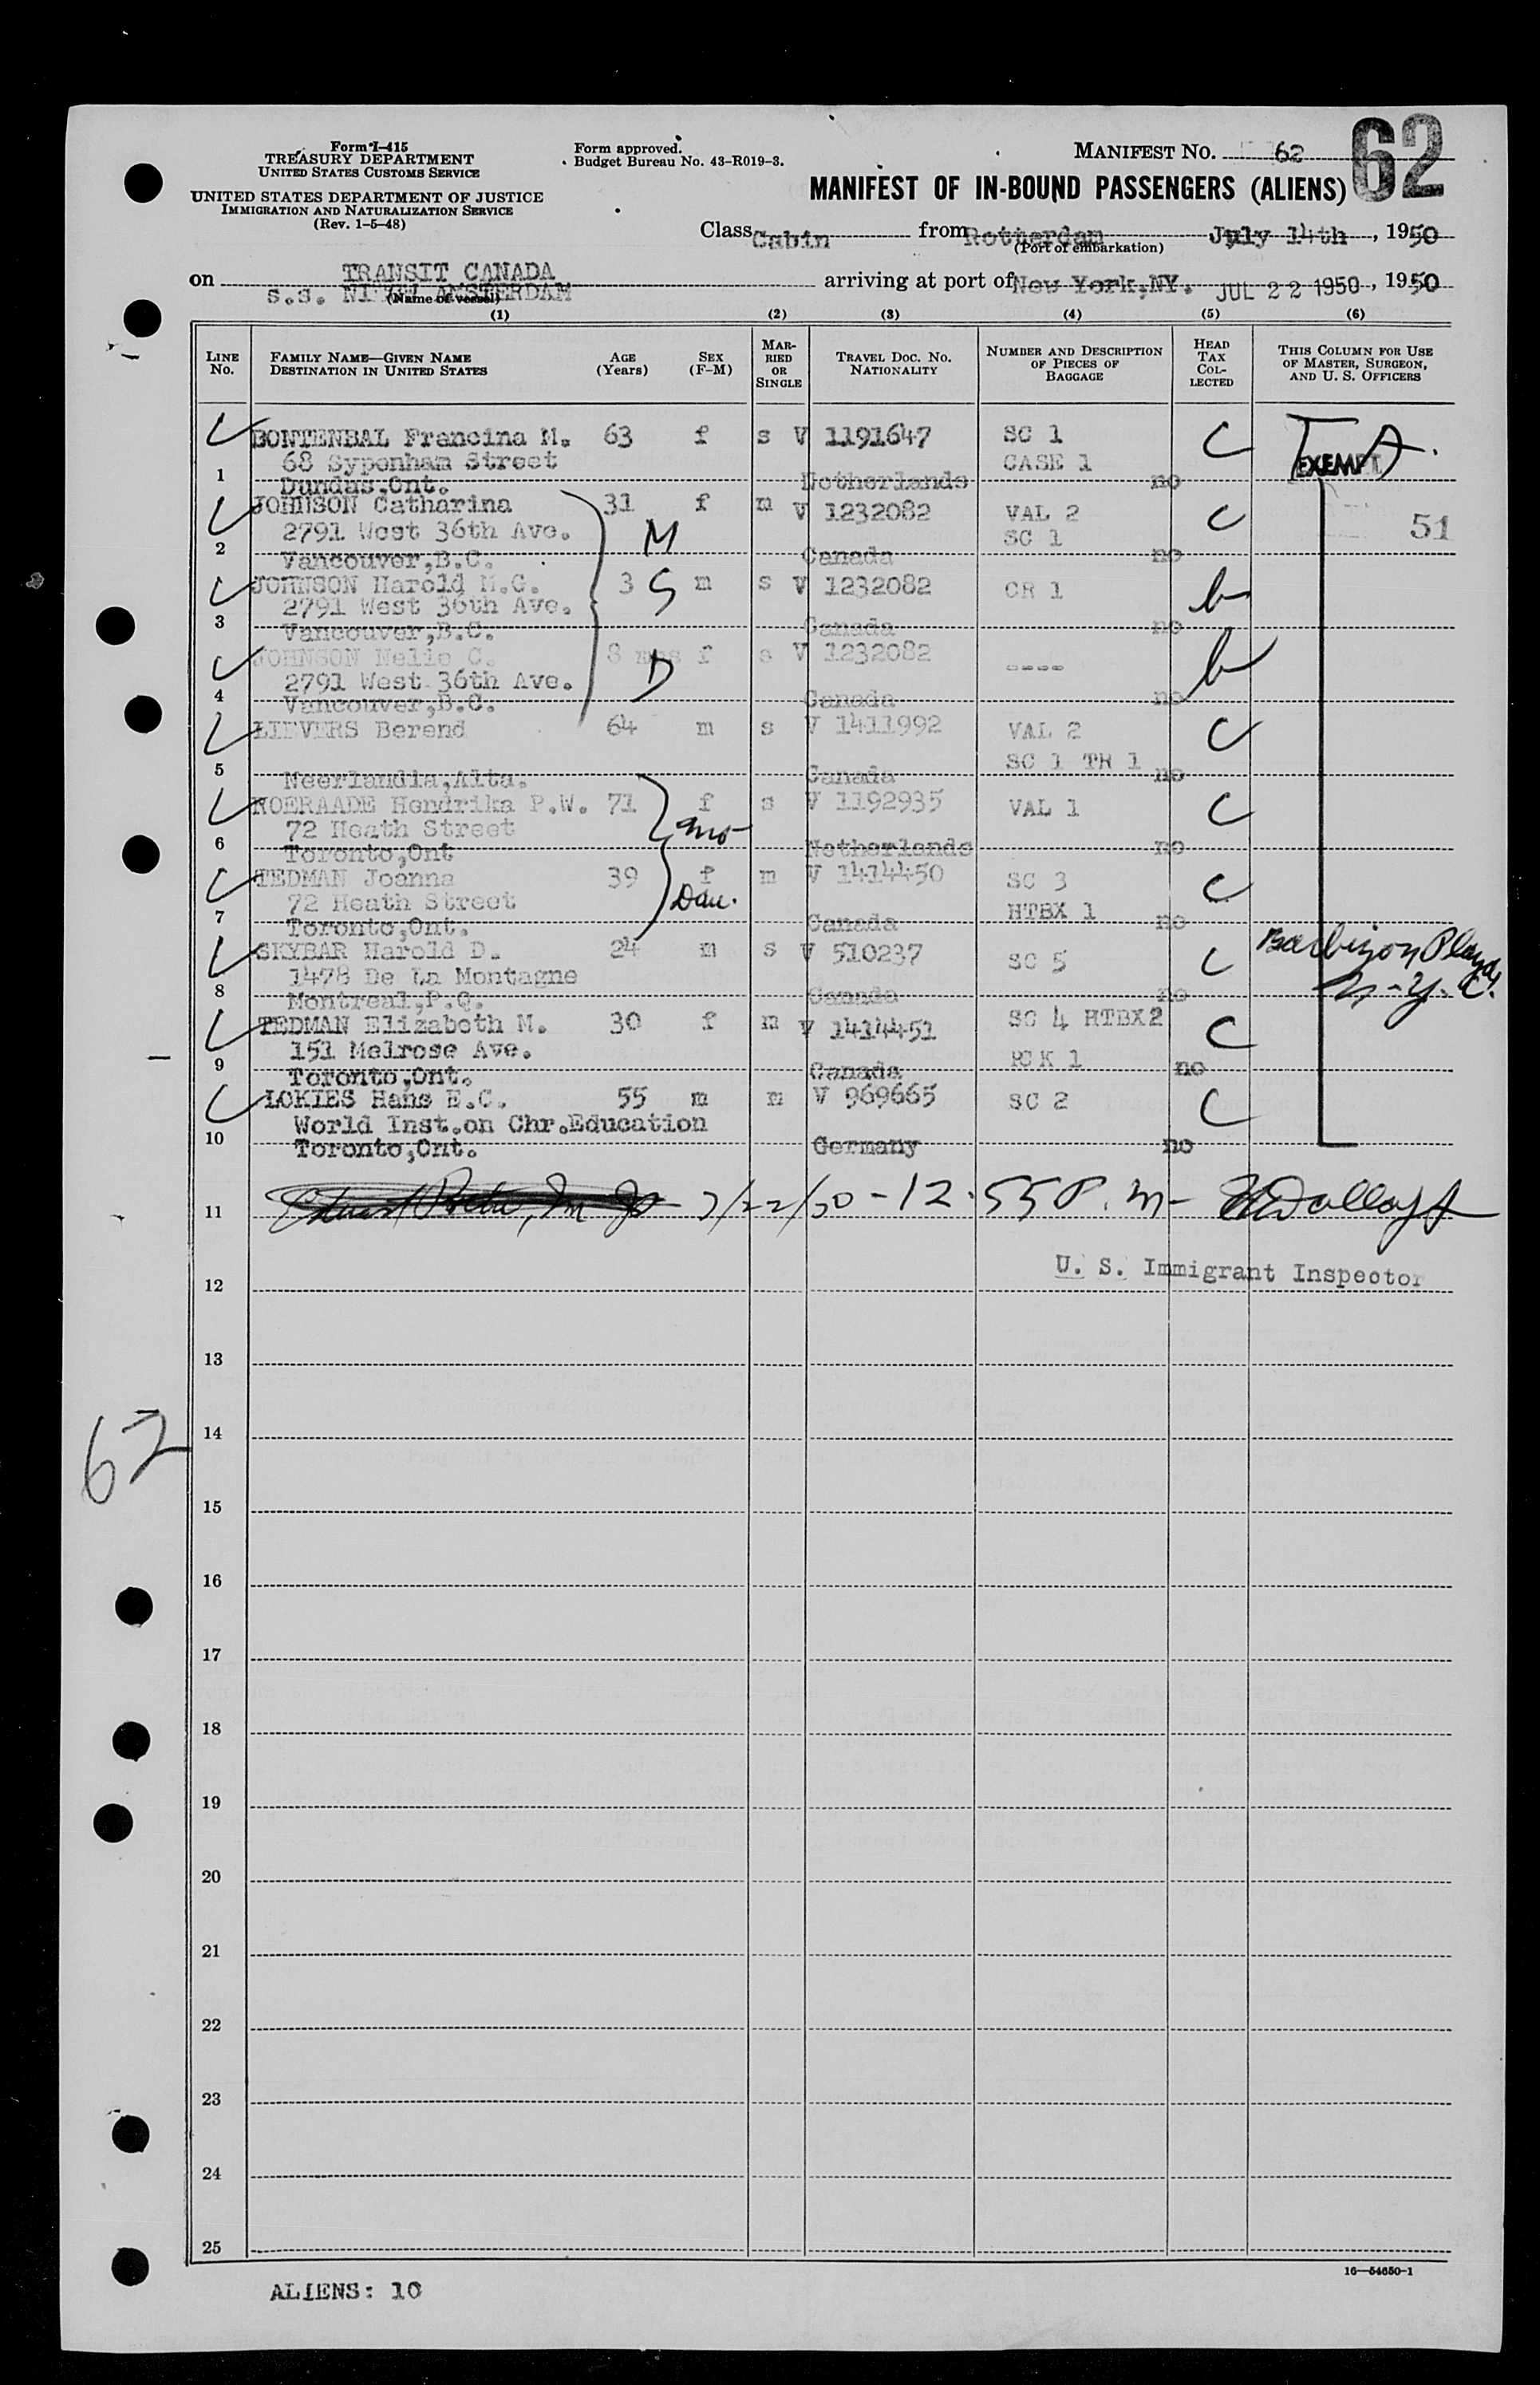 Form I-415
TREASURY DEPARTMENT
UNITED STATES CUSTOMS SERVICE
UNITED STATES DEPARTMENT OF JUSTICE
IMMIGRATION AND NATURALIZATION SERVICE
(Rev. 1-5-48)
Form approved.
Budget Bureau No. 43-R019-3.
MANIFEST NO. 62
62
MANIFEST OF IN-BOUND PASSENGERS (ALIENS)
Class Cabin from Rotterdam July 14th, 1950
(Port of embarkation)
TRANSIT CANADA
on s.s. NIEUW AMSTERDAM arriving at port of New York,NY. JUL 22 1950, 1950
(Name of vessel)
(1) (2) (3) (4) (5) (6)
LINE No. FAMILY NAME—GIVEN NAME DESTINATION IN UNITED STATES AGE (Years) SEX (F-M) MARRIED OR SINGLE TRAVEL DOC. NO. NATIONALITY NUMBER AND DESCRIPTION OF PIECES OF BAGGAGE HEAD TAX COLLECTED THIS COLUMN FOR USE OF MASTER, SURGEON, AND U. S. OFFICERS
BONTENBAL Francina M. 63 f s V 1191647 SC 1 C T A.
68 Syponham Street CASE 1 EXEMPT
1 Dundas,Ont. Netherlands no
JOHNSON Catharina 31 f m V 1232082 VAL 2 C 51
2791 West 36th Ave. M SC 1
2 Vancouver,B.C. Canada no
JOHNSON Harold M.G. 3 S m s V 1232082 CR 1 b
2791 West 36th Ave.
3 Vancouver,B.C. Canada no
JOHNSON Nelie C. 8 mos f s V 1232082 ---- b
2791 West 36th Ave. D
4 Vancouver,B.C. Canada no
LIEVERS Berend 64 m s V 1411992 VAL 2 C
SC 1 TR 1
5 Neerlandia,Alta. Canada no
KOERAADE Hendrika P.W. 71 f s V 1192935 VAL 1 C
72 Heath Street mo
6 Toronto,Ont Netherlands no
TEDMAN Joanna 39 f m V 1414450 SC 3 C
72 Heath Street Dau. HTBX 1
7 Toronto,Ont. Canada no
SKYBAR Harold D. 24 m s V 510237 SC 5 C Barbizon Plaza
1478 De La Montagne N-Y.C.
8 Montreal,P.Q. Canada no
TEDMAN Elizabeth M. 30 f m V 1414451 SC 4 HTBX2 C
151 Melrose Ave. PCK 1
9 Toronto,Ont. Canada no
LOKIES Hans E.C. 55 m m V 969665 SC 2 C
World Inst.on Chr.Education
10 Toronto,Ont. Germany no
11 7/22/50 - 12.55 P.M-
U. S. Immigrant Inspector
12
13
14
62
15
16
17
18
19
20
21
22
23
24
25
16—54650-1
ALIENS: 10